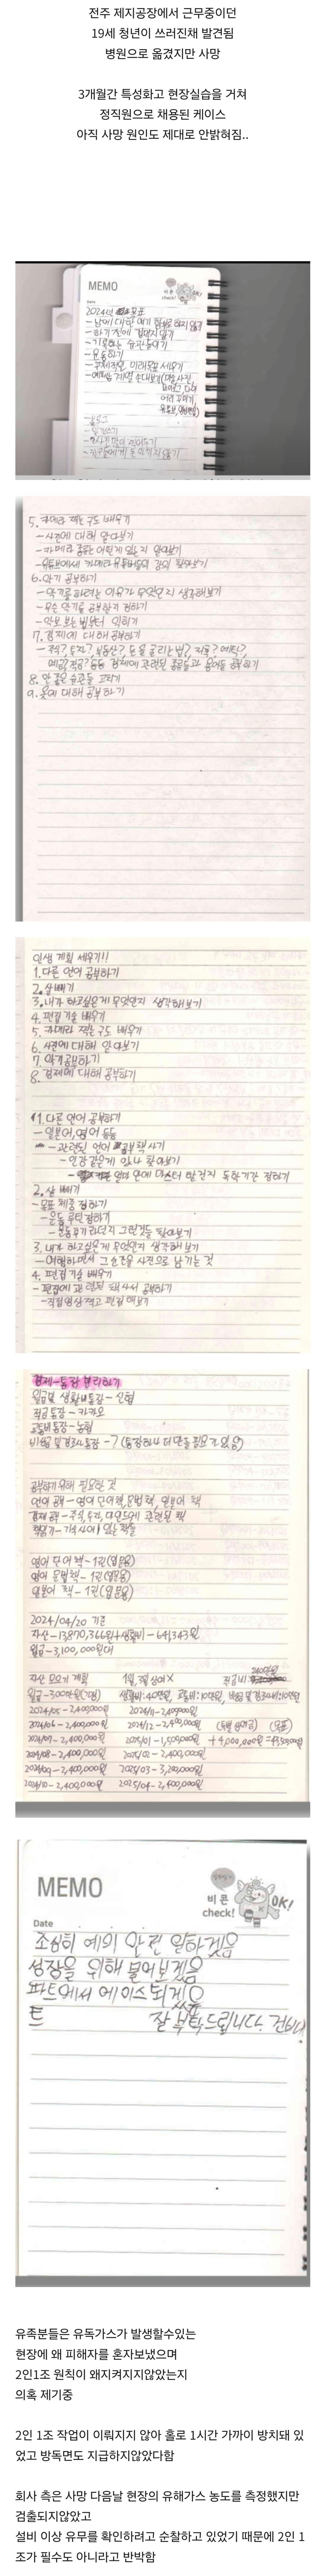 전주 제지공장에서 근무중이던
19세 청년이 쓰러진채 발견됨
병원으로 옮겼지만 사망
3개월간 특성화고 현장실습을 거쳐
정직원으로 채용된 케이스
아직 사망 원인도 제대로 안밝혀짐..
MEMO
비콘
check!
OK!
Date
2024년 목표
- 남에 대한 얘기 함부로 하지 않기
- 하기 전에 겁내지 않기
- 기록하는 습관 들이기
- 운동하기
- 구체적인 미래목표 세우기
- 일기쓰기
- 친구들에게 돈 아끼지 않기
5. 카메라 찍는 구도 배우기
- 사진에 대해 알아보기
- 카메라 종류는 어떤게 있는지 알아보기
- 유튜브에서 카메라 유튜버들의 강의 찾아보기
6. 악기 공부하기
- 악기를 하려는 이유가 무엇인지 생각해보기
- 무슨 악기를 공부할지 정하기
- 악보 보는 법부터 익히기
7. 경제에 대해 공부하기
- 주식? 투자? 부동산? 돈을 굴리는 법? 지출? 예탁?
예금? 적금? 등등 경제에 관련된 종류들과 용어들 공부하기
8. 안 좋은 습관들 고치기
9. 옷에 대해 공부하기
인생 계획 세우기!!
1. 다른 언어 공부하기
2. 살 빼기
3. 내가 하고싶은게 무엇인지 생각해보기
4. 편집 기술 배우기
5. 카메라 찍는 구도 배우기
6. 사진에 대해 알아보기
7. 악기공부하기
8. 경제에 대해 공부하기
1. 다른 언어 공부하기
- 일본어, 영어 등등
- 관련된 언어 공부책 사기
- 인강같은게 있나 찾아보기
- 언제 안에 마스터 할건지 독학기간 정하기
2. 살 빼기
- 목표 체중 정하기
- 운동 루틴 정하기
- 운동기구라던지 그런것들 찾아보기
3. 내가 하고싶은게 무엇인지 생각해 보기
- 여행하면서 그 순간을 사진으로 남기는 것
4. 편집기술 배우기
- 편집에 관련된 책 사서 공부하기
- 직접 영상 찍고 편집 해보기
경제-통장 분리하기
월급 및 생활비통장 - 신협
적금통장 - 카카오
교통비통장 - 농협
비상금 및 경조사 통장 - ? (통장하나 더 만들 필요가 있음)
공부하기 위해 필요한 것
언어 공부 - 영어 단어책, 문법책, 일본어 책
책읽기 - 기숙사에 있는 책들
영어 단어 책 - 1권(입문용)
영어 문법책 - 1권(입문용)
일본어 책 - 1권(입문용)
2024/04/20 기준
자산 - 13,870,366원 + 생활비 - 64,343원
월급 - 3,100,000원대
자산 모으기 계획
2024/05 - 2,400,000원 2024/11 - 2,400,000원
2024/06 - 2,400,000원 2024/12 - 2,400,000원
2024/07 - 2,400,000원 2025/01 - 1,500,000원
2024/08 - 2,400,000원 2025/02 - 2,400,000원
2024/09 - 2,400,000원 2025/03 - 3,200,000원
2024/10 - 2,400,000원 2025/04 - 2,400,000원
MEMO
비콘
check!
OK!
Date
조심히 예의 안전 일하겠음
성장을 위해 물어보겠음
파트에서 에이스 되겠음
잘 부탁드립니다.
유족분들은 유독가스가 발생할수있는
현장에 왜 피해자를 혼자보냈으며
2인1조 원칙이 왜지켜지지않았는지
의혹 제기중
2인 1조 작업이 이뤄지지 않아 홀로 1시간 가까이 방치돼 있
었고 방독면도 지급하지않았다함
회사 측은 사망 다음날 현장의 유해가스 농도를 측정했지만
검출되지않았고
설비 이상 유무를 확인하려고 순찰하고 있었기 때문에 2인 1
조가 필수도 아니라고 반박함